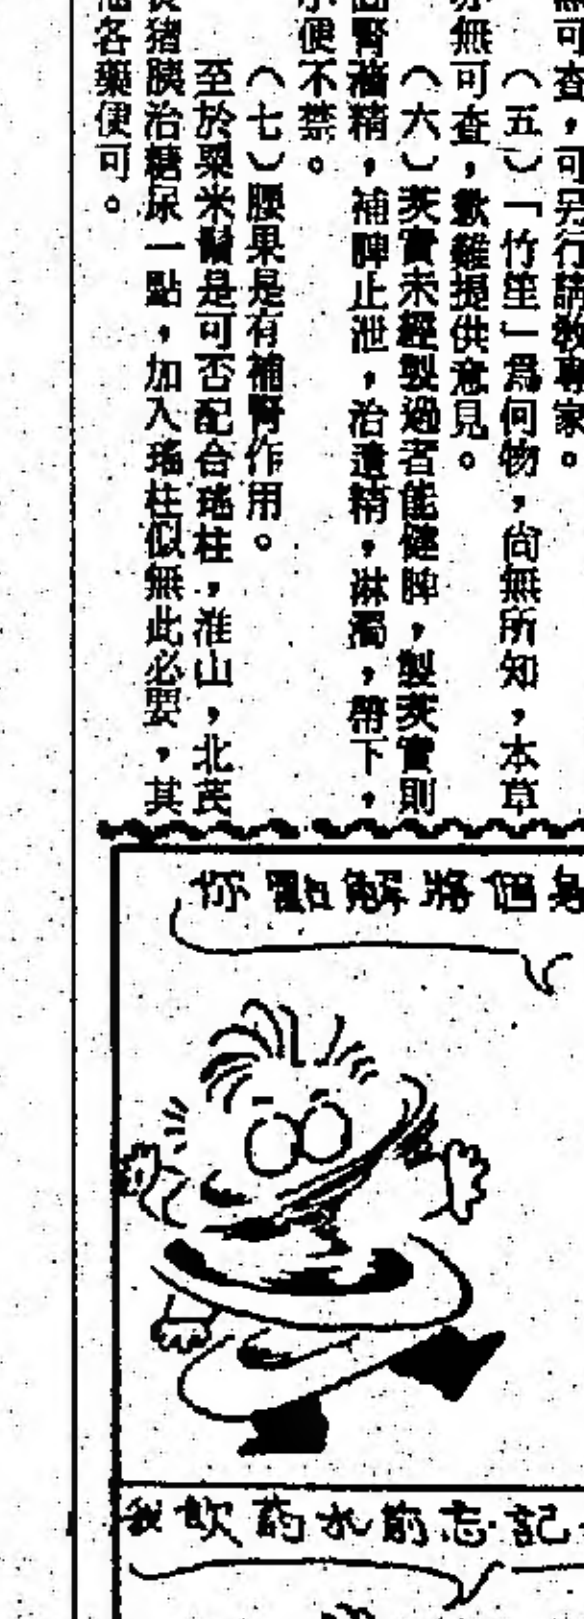 無可查，可另行請教專家。
（五）「竹笙」爲何物，尚無所知，本草
亦無可查，歉難提供意見。
（六）芡實未經製過者能健脾，製芡實則
固腎濇精，補脾止泄，治遺精，淋濁，帶下，
小便不禁。
（七）腰果是有補腎作用。
至於粟米鬚是可否配合瑤柱，淮山，北芪
猪胰治糖尿一點，加入瑤柱似無此必要，其
各藥便可。
你點解將個身
我飲葯水前忘記